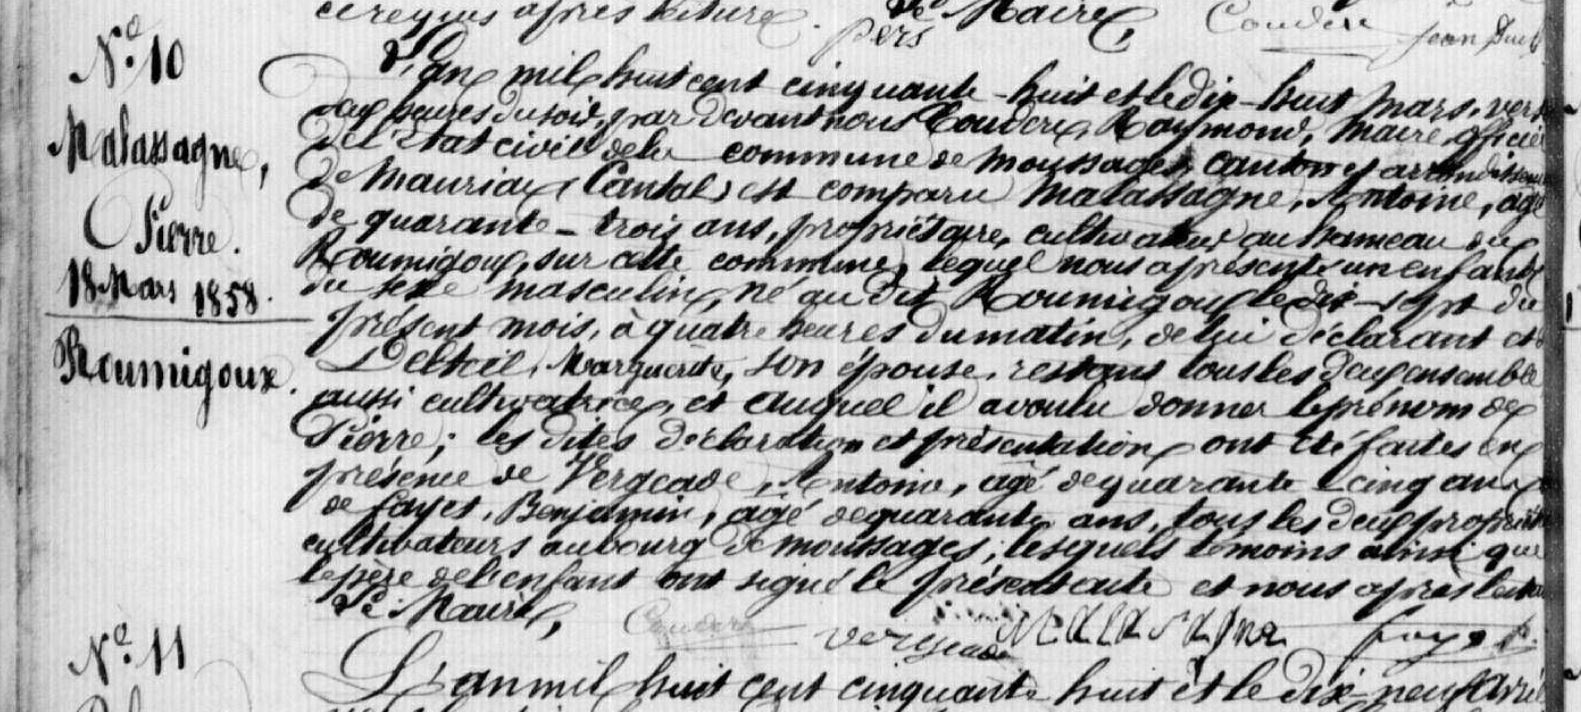 ce requis après lecture. Le Maire, Couderc Jean
pers
N.º 10
Malassagne,
Pierre.
18 Mars 1858.
Roumigoux.
L'an mil huit cent cinquante-huit et le dix-huit mars, vers
deux heures du soir, par devant nous Couderc, Raymond, maire officier
de l'Etat civil de la commune de moussages, canton et arrondissement
de Mauriac (Cantal) est comparu Malassagne, Antoine, âgé
de quarante-trois ans, propriétaire, cultivateur au hameau du
Roumigoux, sur cette commune, lequel nous a présenté un enfant
du sexe masculin, né au dit Roumigoux le dix-sept du
présent mois, à quatre heures du matin, de lui déclarant et
Delteil, Marguerite, son épouse, restans tous les deux ensemble
aussi cultivatrice, et auquel il a voulu donner le prénom de
Pierre; les dites déclaration et présentation ont été faites en
présence de Vergeade, Antoine, âgé de quarante-cinq ans,
de fayet, Benjamin, âgé de quarante ans, tous les deux propriétaires
cultivateurs au bourg de moussages; lesquels témoins ainsi que
le père de l'enfant ont signé le présent acte et nous après lecture
Le Maire, Couderc Vergeade Malassagne fayet
N.º 11
L'an mil huit cent cinquante huit et le dix-neuf avril